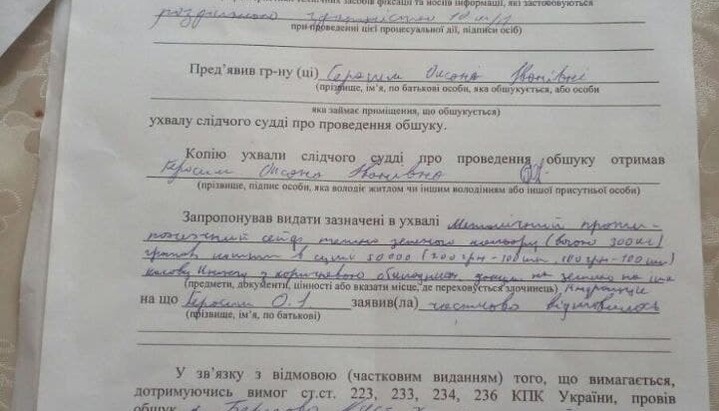 технічних засобів фіксації та носіїв інформації, які застосовуються
роздільною здатністю 10 м/п
при проведенні цієї процесуальної дії, підписи осіб)
Пред'явив гр-ну (ці) Герасим Оксана Іванівні
(прізвище, ім'я, по батькові особи, яка обшукується, або особи
яка займає приміщення, що обшукується)
ухвалу слідчого судді про проведення обшуку.
Копію ухвали слідчого судді про проведення обшуку отримав
Герасим Оксана Іванівна
(прізвище, підпис особи, яка володіє житлом чи іншим володінням або іншої присутньої особи)
Запропонував видати зазначені в ухвалі Металічний проти-
пожежний сейф темно зеленого кольору (вагою 300кг)
грошові кошти в сумі 50000 (200 грн-100шт, 100грн-100шт)
касову книгу з коричневого на землю на
(предмети, документи, цінності або вказати місце, де переховується злочинець)
на що Герасим О.І заявив(ла) частково відмовилась
(прізвище, ім'я, по батькові)
У зв'язку з відмовою (частковим виданням) того, що вимагається,
дотримуючись вимог ст.ст. 223, 233, 234, 236 КПК України, провів
обшук